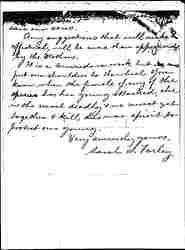 save our sons.
Any suggestions that will make
official, will be more than appreciated
by the Mothers.
It is a tremendous work but
put our shoulders to the wheel. You
know when the female of any of the
species has her young attacked, she
is the most deadly & we must get
together & kill, this war spirit to
protect our young.
Very sincerely yours,
Sarah